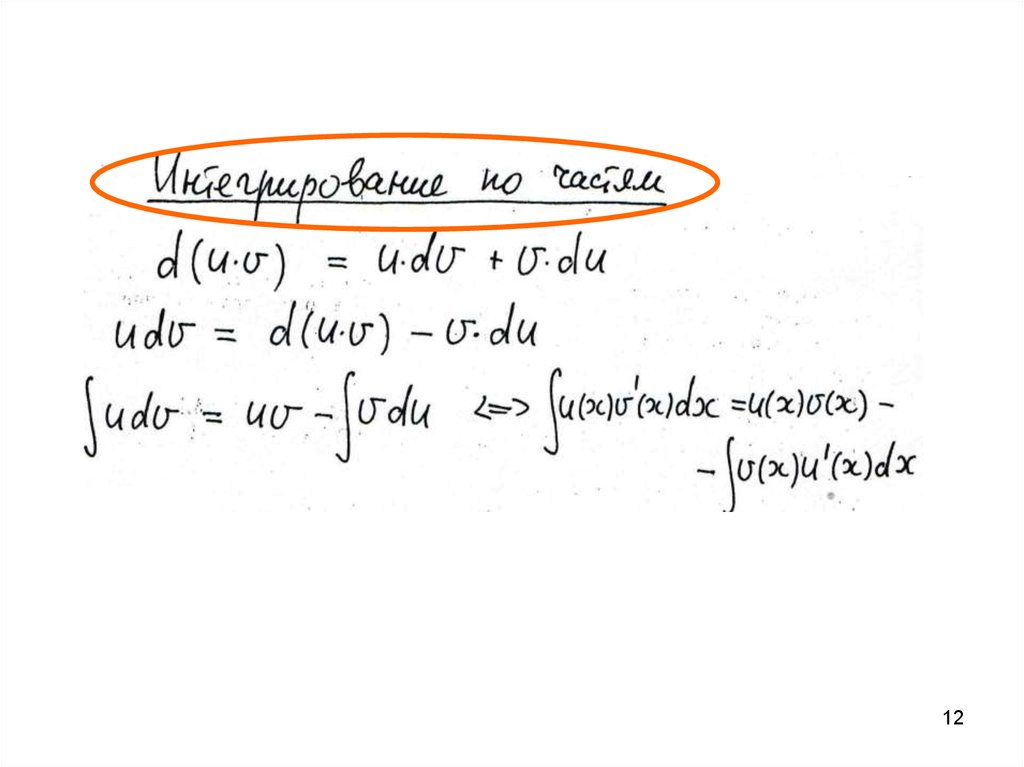 Интегрирование по частям
d(u·v) = u·dv + v·du
udv = d(u·v) – v·du
∫udv = uv – ∫vdu <=> ∫u(x)v'(x)dx = u(x)v(x) –
– ∫v(x)u'(x)dx
12